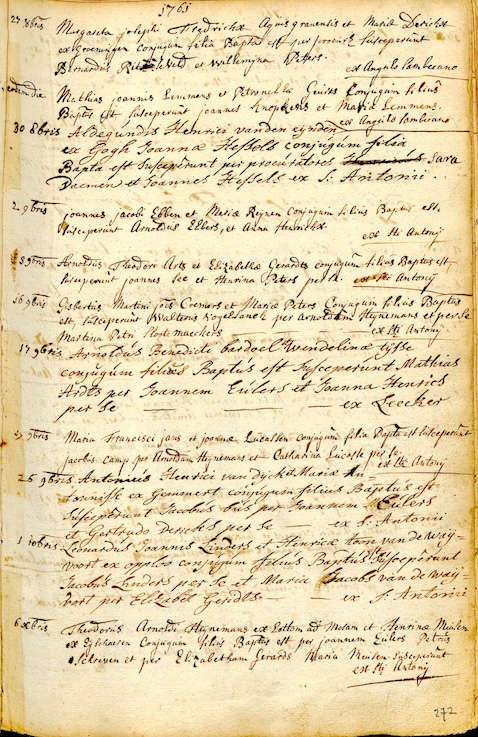 1761
27 8bris Margareta Josephi Fredrickx Agnes graventis et Mariæ Derickx
ex Groeningen conjugum filia Bapta est per procurs susceperunt
Bernardus et Willemyna Peters. ex Angulo Sambeeano
eodem die Mathias Joannis Lemmens et Petronellæ Geurts Conjugum filius
Baptus est, susceperunt Joannes et Maria Lemmens.
ex Angulo Sambeano
30 8bris Aldegundis Henrici vanden eynden
ex Gogh Joannæ Hessels conjugum filia
Bapta est susceperunt per procuratores Sara
Daemen et Joannes Hessels ex S: Antonii
2 9bris Joannes Jacobi Ebben et Mariæ Reynen Conjugum filius Baptus est.
susceperunt Arnoldus Ebbers, et Anna Henrickx
ex Sti Antonij
5 9bris Arnoldus Theodori Arts et Elizabethæ Gerardts conjugum filius Baptus est
susceperunt Joannes et Henrina Peters per se. ex Sti Antonij
16 9bris Gisbertus Martini Jois Cremers et Mariæ Peters Conjugum filius Baptus
est, susceperunt Walterus Vogelsanck per Arnoldum Hynemans et per se
Martina Petri ex Sti Antonij
17 9bris Arnoldus Benedicti bardoel Wendelinæ tysse
conjugum filius Baptus est susceperunt Mathias
Ardts per Joannem Eulers et Joanna Henrics
per se ex Leecker
27 9bris Maria Francisci Jans et Joannæ Lucassen Conjugum filia Bapta est susceperunt
Jacobus Camp per Arnoldum Hynemans et Catharina Lucasse per se
ex Sti Antony
26 9bris Antonius Henrici van dyck et Mariæ An-
tonisse ex Gemmert conjugum filius Baptus est
susceperunt Jacobus bus per Joannem Eulers
et Gertrudo Dericks per se ex S: Antonii
1 10bris Leonardus Joannis Linders et Henricæ van de Way=
vort ex opploo conjugum filius Baptus susceperunt
Jacobus Linders per se et Maria Jacobs van de Way=
vort per Elizabet Gerdts ex S: Antonii
6 Xbris Theodorus Arnoldi Hynemans ex Lottom ad Mosam et Henrinæ Meulen
Conjugum filius Baptus est per Joannem Eulers Petrus
et per Elizabetham Gerards Maria susceperunt
ex Sti Antony
272